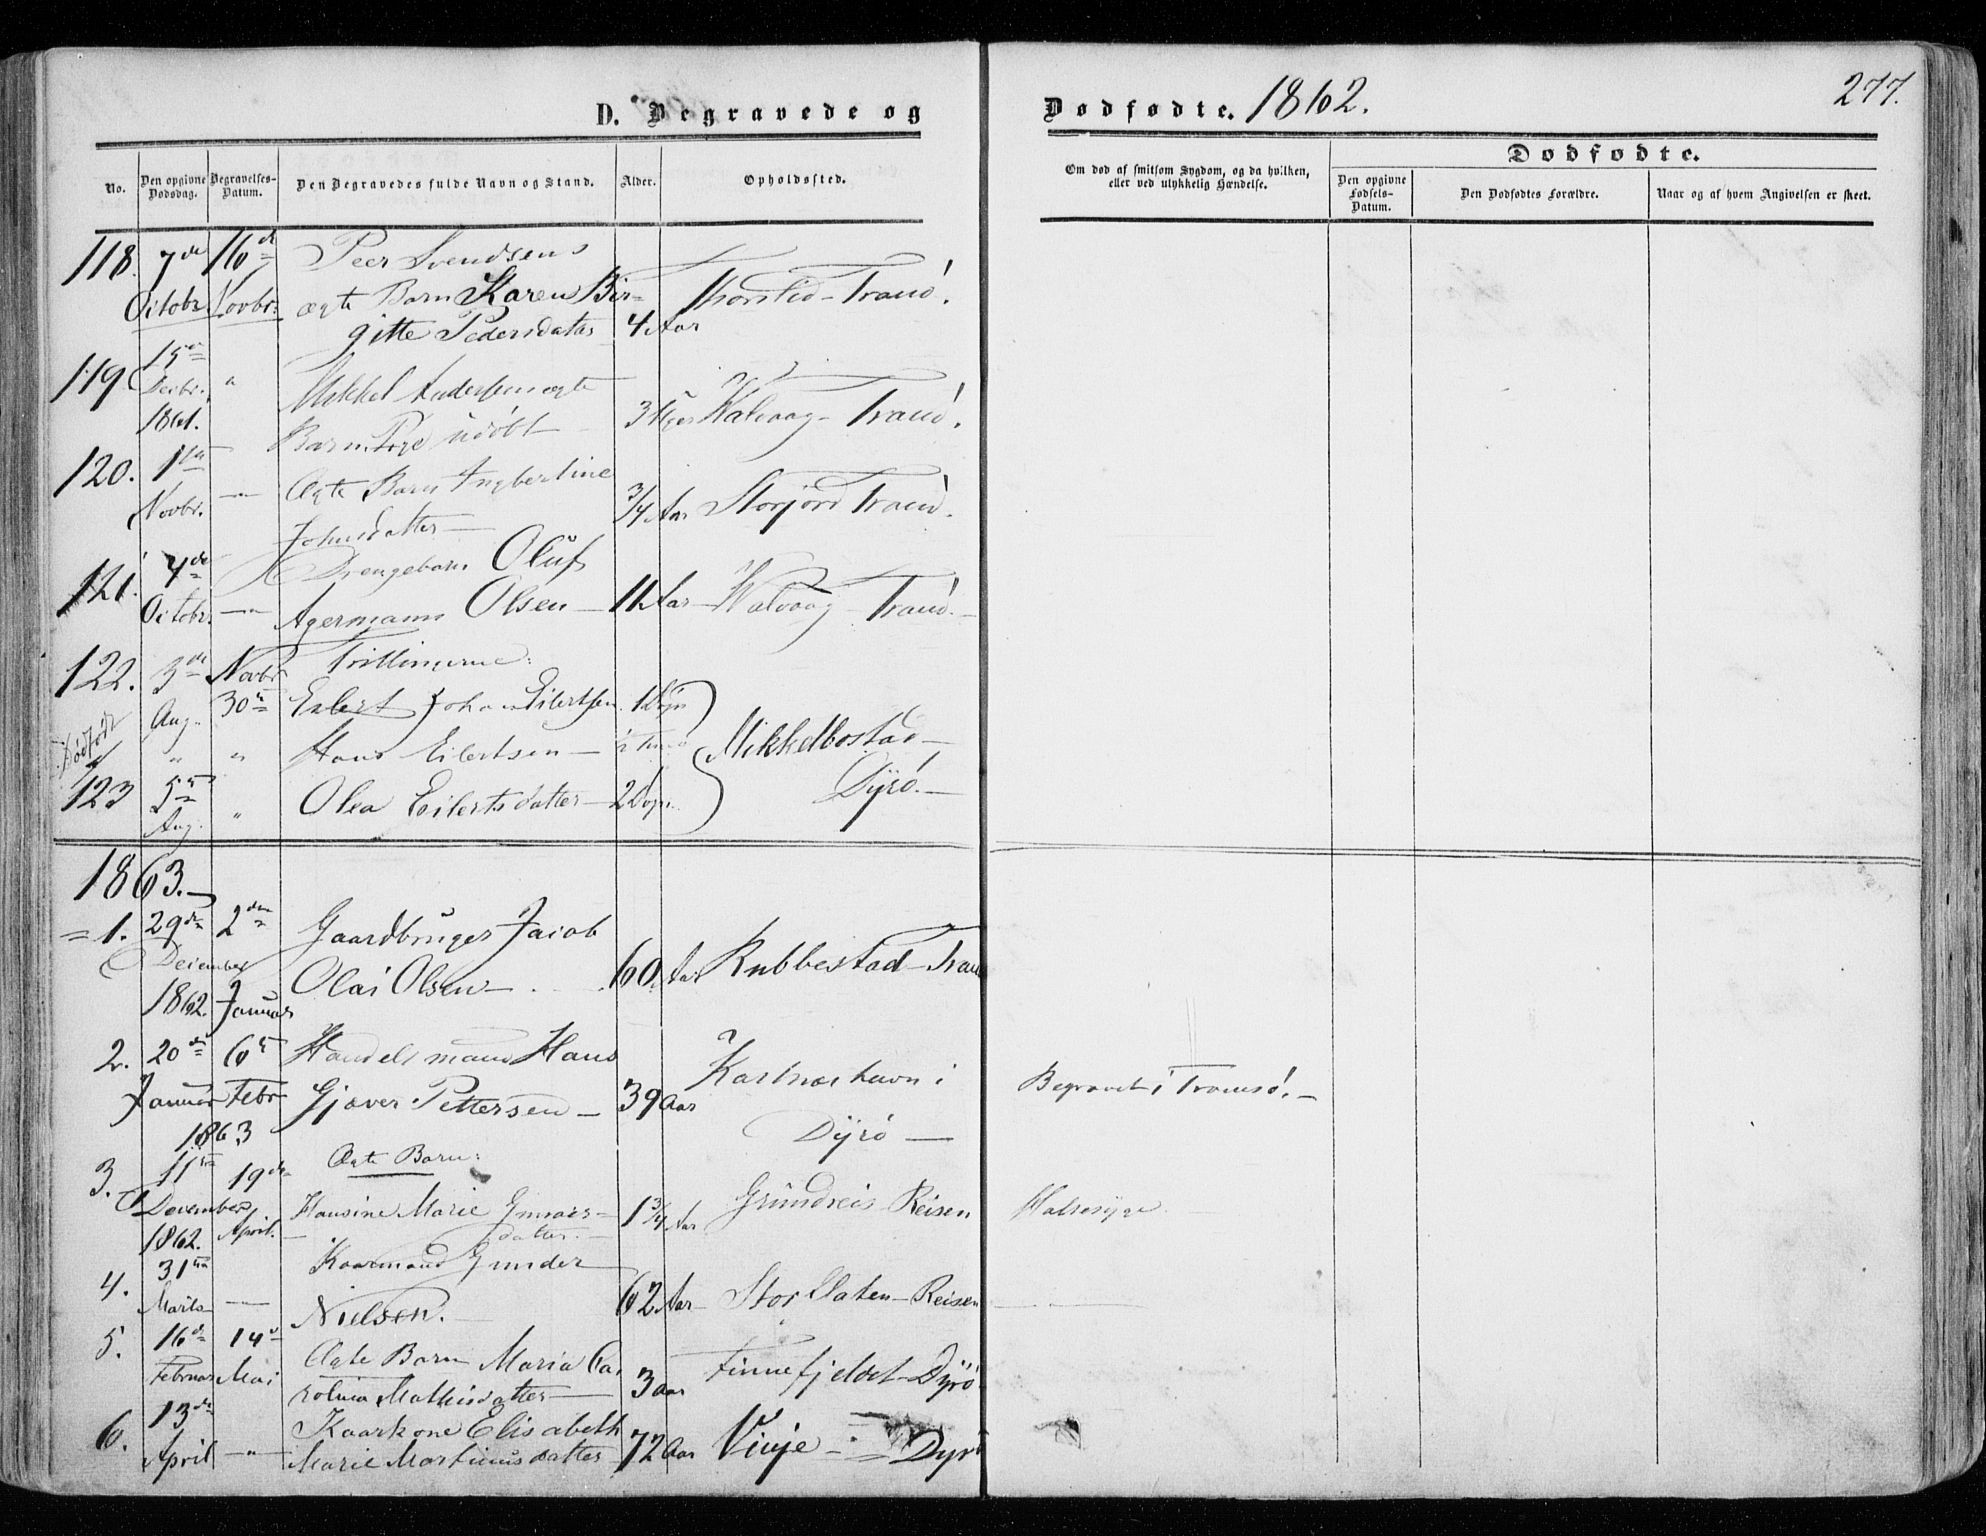 D. Begravede og Dødfødte. 1862.
277.
No.
Den opgivne Dødsdag.
Begravelses-Datum.
Den Begravedes fulde Navn og Stand.
Alder.
Opholdssted.
Om død af smitsom Sygdom, og da hvilken,
eller ved ulykkelig Hændelse.
Dødfødte.
Den opgivne Fødsels-Datum.
Den Dødfødtes Forældre.
Naar og af hvem Angivelsen er skeet.
118. 7de 16de Peer Svendsens
Octobr. Novbr. ægte Barn Karen Bir- Tranö.
gitte Pedersdatter 4 Aar
119 15de
Decbr. " Mikkel Andersens ægte
1861. Barn Pige udöbt 3 Uger Kalvaag - Tranö.
120. 1ste Ægte Barn Ingbertine
Novbr. - " - 3/4 Aar Storjord Tranö.
Johnsdatter -
121. 4de Drengebarn Oluf
Octobr. - " - Agermann Olsen - 11 Aar - Kalvaag - Tranö. -
122. 3de Novbr Trillingerne:
Aug. 30te Eilert Johan Eilertsen. 1 Dögn
Dödfödt " " Hans Eilertsen - Mikkelbostad -
123 5te Olea Eilertsdatter - 2 Dogn. Dÿrö. -
Aug. "
1863. -
= 1. 29de 2den Gaardbruger Jacob
December Olai Olsen - 60. Aar Kubbestad - Tranö
1862. Januar
2. 20de 6te Handelsmand Hans Kastneshavn i Begravet i Tromsö. -
Januar Febr Gjæver Pettersen - 39 Aar
1863 Dÿrö -
3. 11te 19de Ægte Barn:
December Hansine Marie - 1 3/4 Aar Grundreis Reisen Halssyge.
1862. April. - datter. -
4. 31te Kaarmand Gunder
Marts - " - Nielsen. - 62 Aar - Storslaten - Reisen
5. 16de 14de Ægte Barn Maria Ca-
Februar Mai rolina Mathisdatter - 3 Aar Finnefjeldet - Dÿrö
6. 13de Kaarkone Elisabeth
April - " - Marie Martinusdatter 72 Aar Vinje - Dyrö